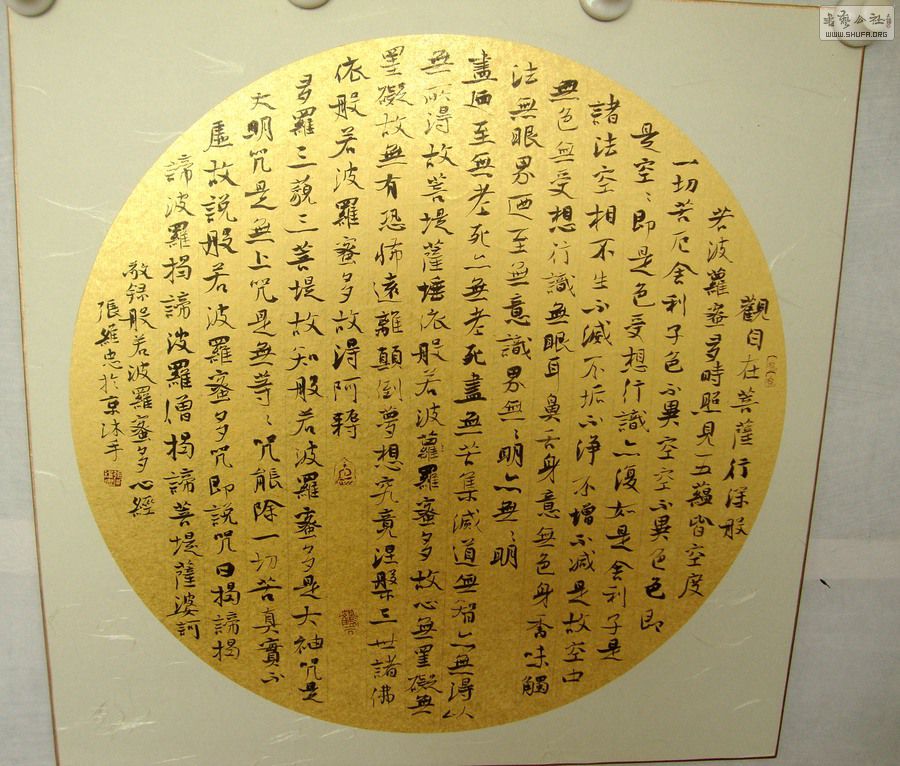 觀自在菩薩行深般
若波蘿蜜多時照見五蘊皆空度
一切苦厄舍利子色不異空空不異色色即
是空〻即是色受想行識亦復如是舍利子是
諸法空相不生不滅不垢不淨不增不減是故空中
無色無受想行識無眼耳鼻舌身意無色身香味觸
法無眼界迺至無意識界無〻明亦無〻明
盡迺至無老死亦無老死盡無苦集滅道無智亦無得以
無所得故菩堤薩埵依般若波蘿羅蜜多故心無罣礙無
罣礙故無有恐怖遠離顛倒夢想究竟涅槃三世諸佛
依般若波羅蜜多故得阿耨
多羅三藐三菩堤故知般若波羅蜜多是大神咒是
大明咒是無上咒是無等〻咒能除一切苦真實不
虛故說般若波羅蜜多咒即說咒曰揭諦揭
諦波羅揭諦波羅僧揭諦菩堤薩婆訶
敬録般若波羅蜜多心經
張維忠於京沐手
書藝公社
WWW.SHUFA.ORG